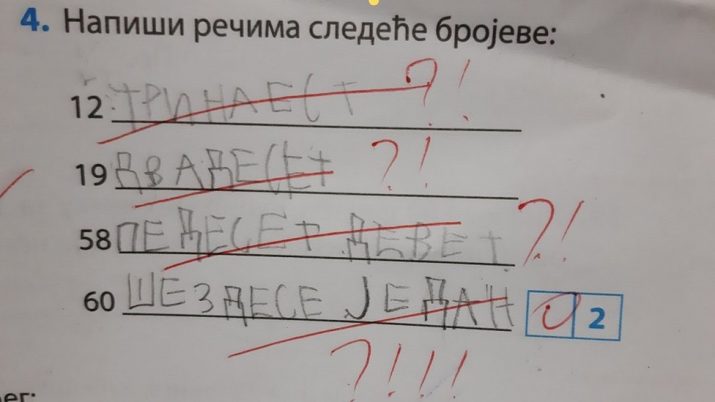 4. Напиши речима следеће бројеве:
12 ТРИНАЕСТ ?!
19 ДВАДЕСЕТ ?!
58 ПЕДЕСЕТ ДЕВЕТ ?!
60 ШЕЗДЕСЕ ЈЕДАН 0 2
?!!!
ег: